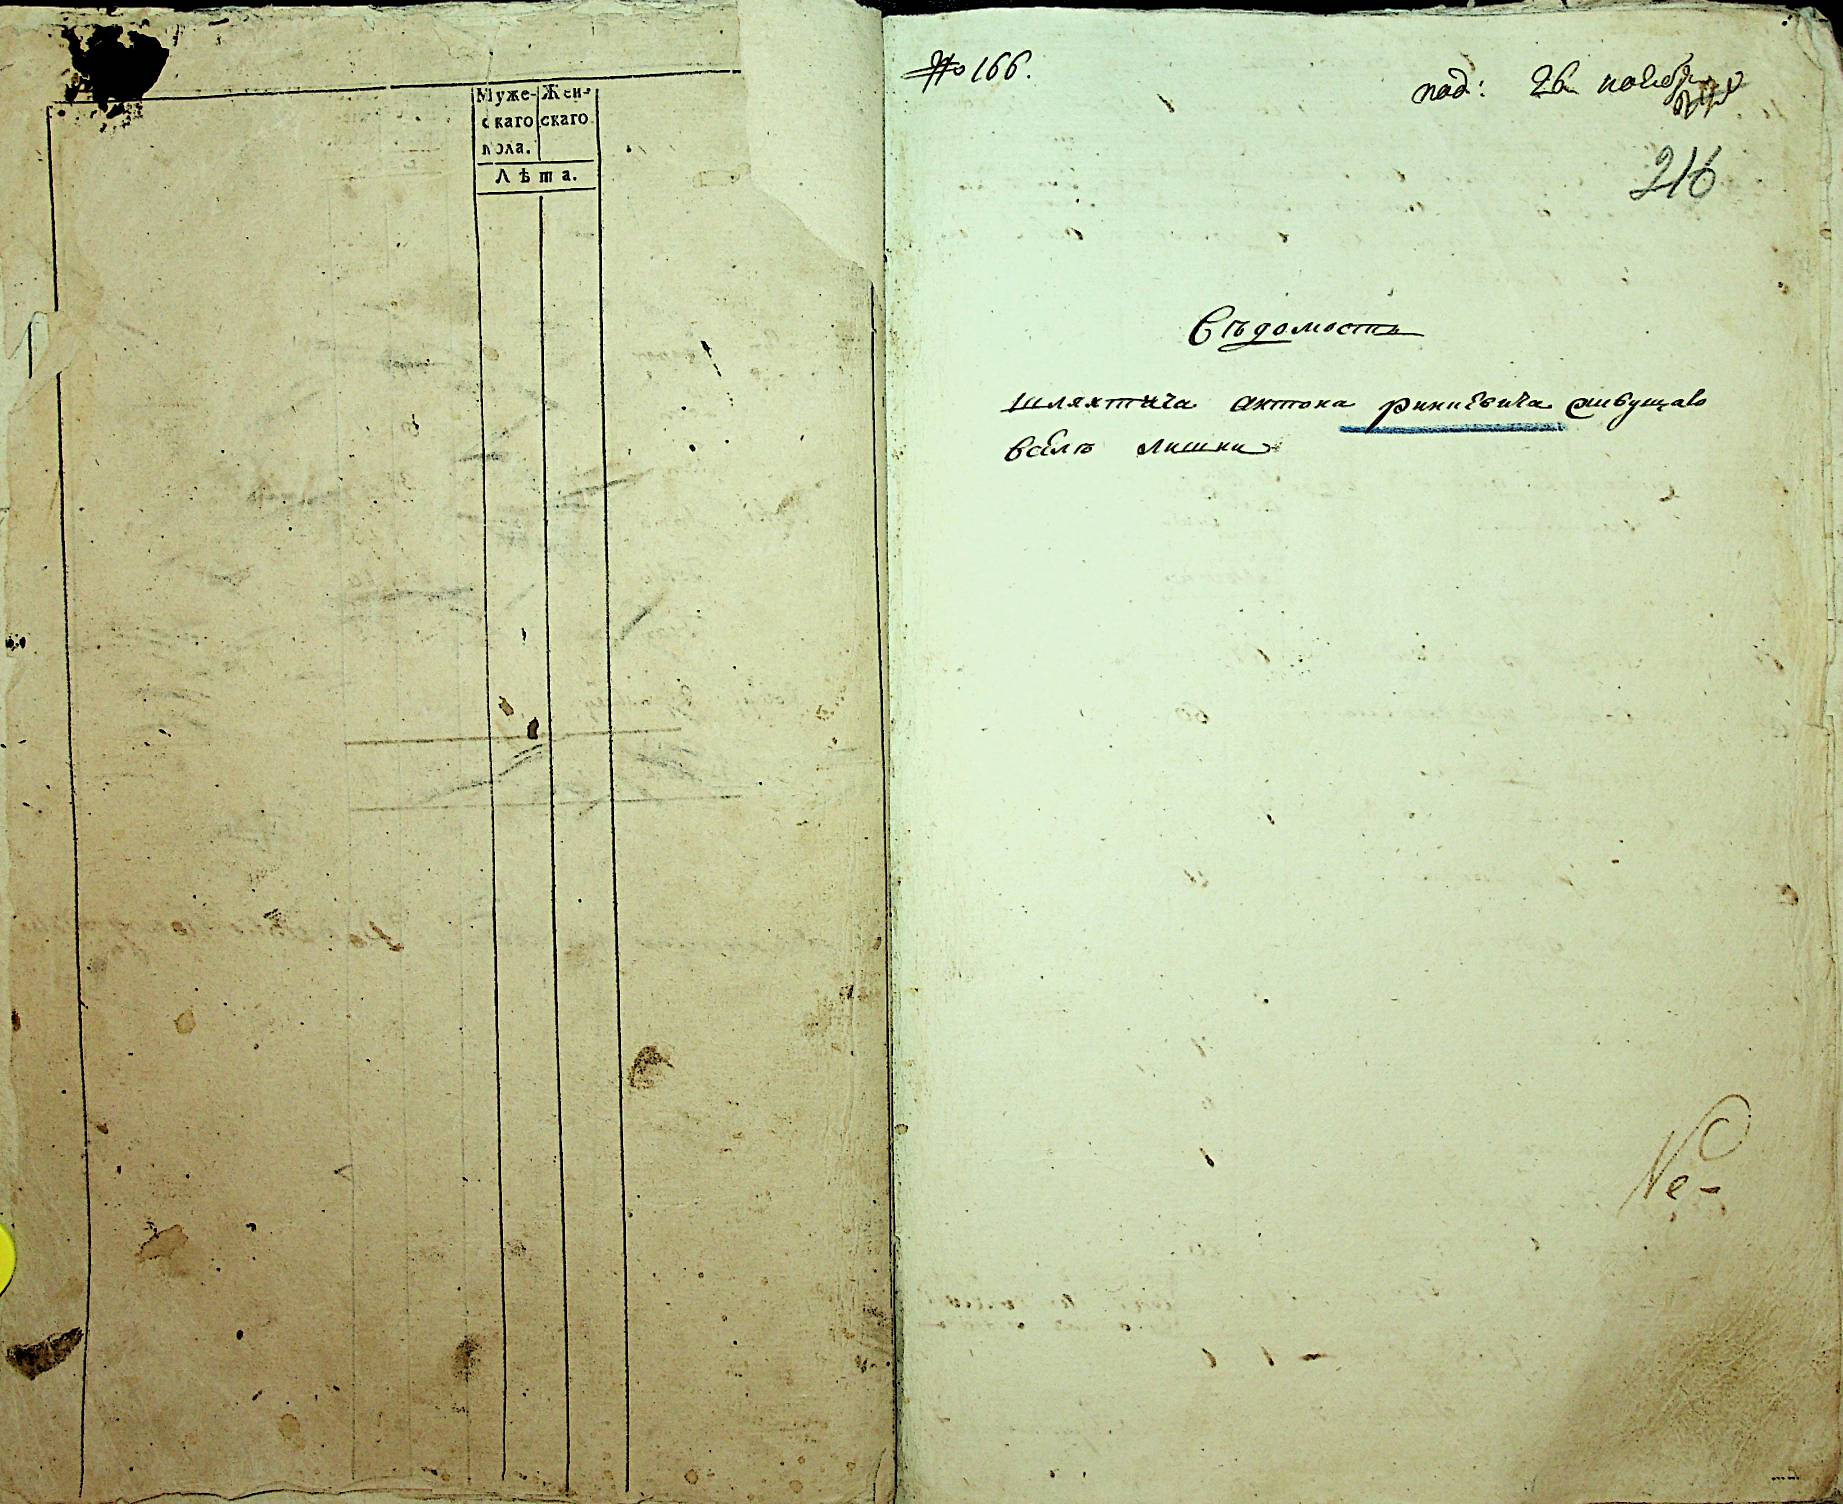 Муже- Жен-
скаго скаго
пола.
Лѣта.
№ 166.
под: 26 ноября
216
Вѣдомость
шляхтича антона риниевича живущаго
вселѣ лишни
Ne-